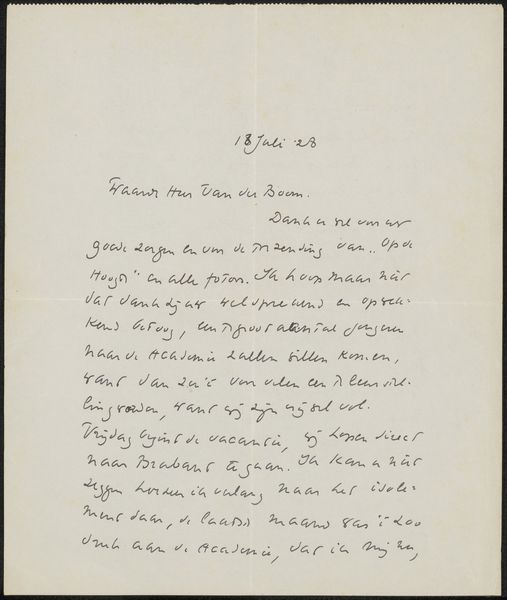 18 Juli '28
Waarde Heer Van der Boom.
Dank u wel voor uw
goede zorgen en voor de toezending van "Op de
Hoogte" en alle foto's. Ik hoop maar niet
dat dank zij uw welsprekend en opwek-
kend betoog, een groot aantal jongeren
naar de Academie zullen willen komen,
want dan zou 't voor velen een teleurstel-
ling worden, want wij zijn vrijwel vol.
Vrijdag begint de vacantie, wij hopen direct
naar Brabant te gaan. Ik kan u niet
zeggen hoezeer ik verlang naar het isole-
ment daar, de laatste maand was 't zoo
druk aan de Academie, dat ik mij nu,